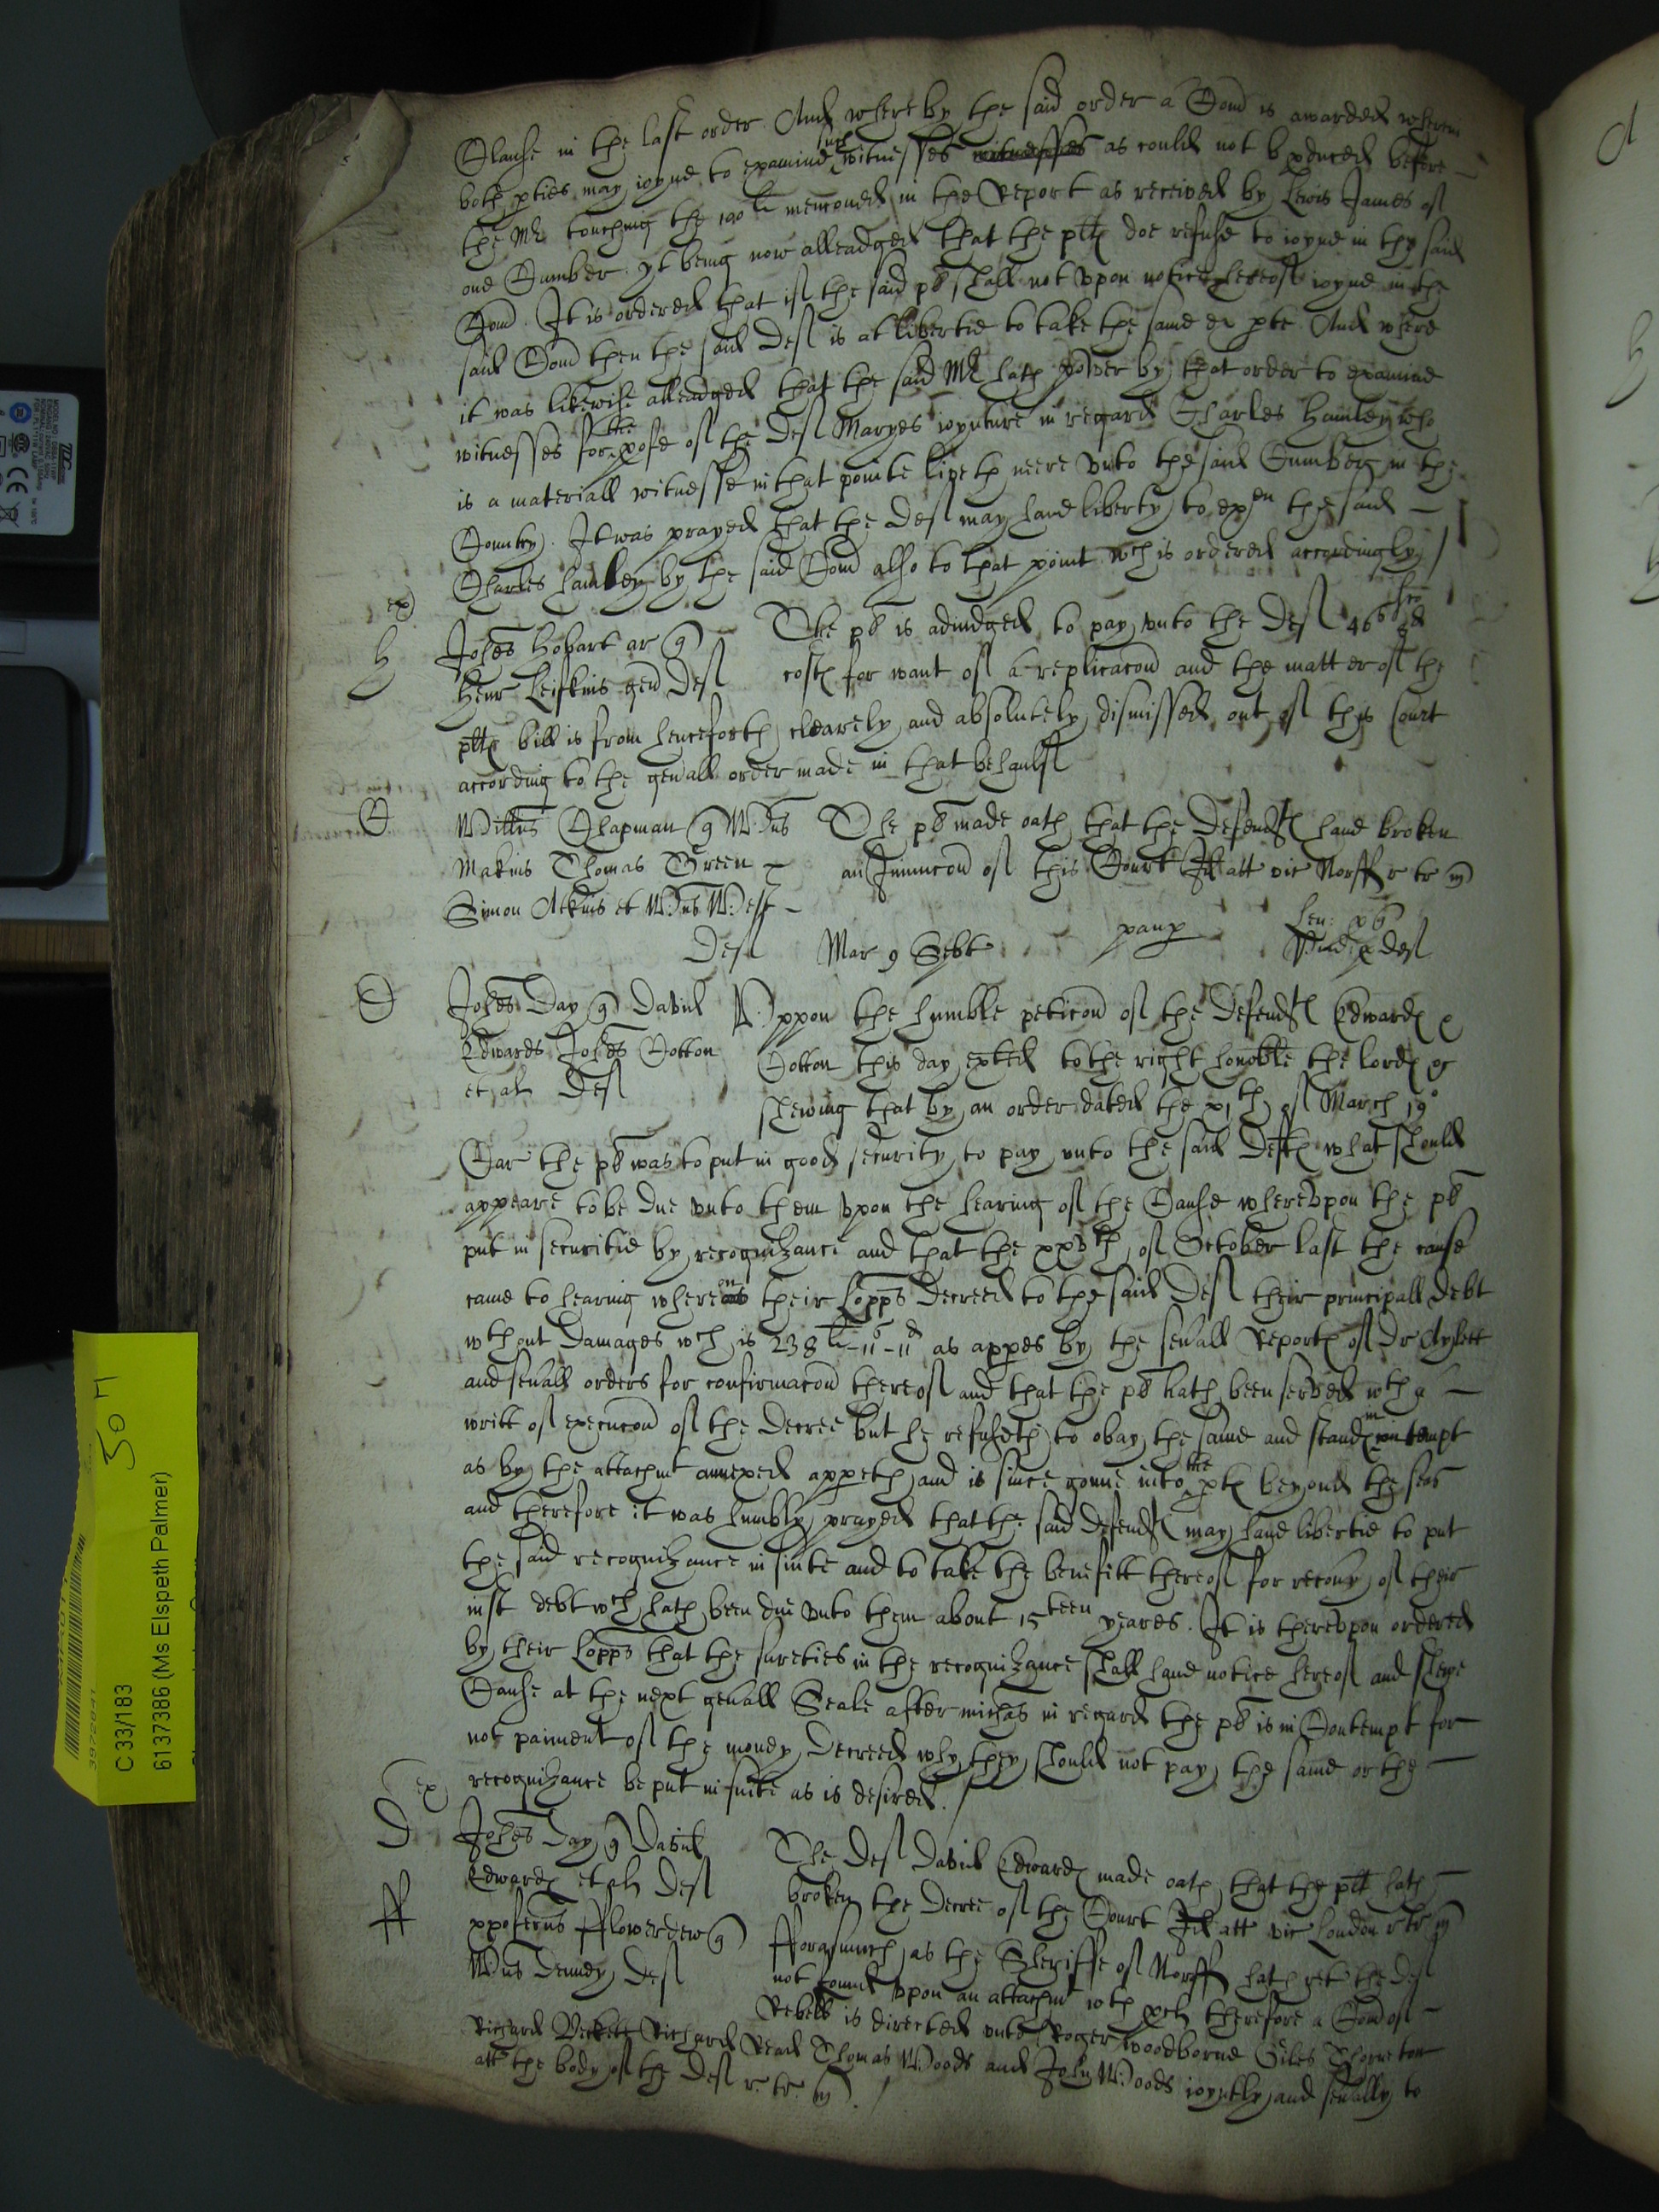 Clause in the last order And whereby the said order a Com̄ is awarded wherein
both pties may ioyne to examine such witnesses witnesses as could not b pduced before
the Mr touching the 190li mencōned in the Report as received by Lewis James of
one Cumber. yt being now alleadged that the pltℓ doe refuse to ioyne in the said
Com̄. It is ordered that if the said pl shall not vpon notice hereof ioyne in the
said Com̄ then the said Def is at libertie to take the same ex pte. And where
it was likewise alleadged that the said Mr hath power by that order to examine
witnesses for the prose of the Def Maryes ioynture in regard Charles Hamley who
is a materiall witnesse in that pointe liveth neere vnto the said Cumber in the
Country. It was prayed that the Def may have liberty to exen the said
Charles Hamley by the said Com̄ also to that point wch is ordered accordingly /
ex
H Johēs Hobart ar q
Henr Leifkins gen Def
The pl is adiudged to pay vnto the Def 46s 8d
costℓ for want of a replicacon and the matter of the
pltℓ bill is from henceforth clearely and absolutely dismissed out of this Court
according to the genall order made in that behaulf
C Willūs Chapman q Wm̄s
Makins Thomas Green
Simon Atkins et Wm̄s West
Def
The pl made oath that the Defendtℓ have broken
an Iniuncōn of this Court Id att vic Norff r tr m
Mar 9 Sebt paup Hen: pl
Vind p def
D Johēs Day q David
Edwards Johēs Cotton
et al Def
Vppon the humble peticōn of the Defendtℓ Edwardℓ &
Cotton this day exhted to the right honoble the lordℓ &
shewing that by an order dated the xith of March 19o
Car the pl was to put in good security to pay vnto the said Deftℓ what should
appeare to be due vnto them vpon the hearing of the Cause wherevpon the pl
put in securitie by recognizance and that the xxvth of October last the cause
came to hearing whereon their Lopps decreed to the said Def their principall debt
wthout Damages wch is 238li-11s-11d as appes by the seuall Reportℓ of Dr Aylett
and seuall orders for confirmacōn thereof and that the pl hath been served wth a
writt of execucōn of the Decree but he refuseth to obay the same and standℓ in contempt
as by the attachmt annexed appeth and is since gonne into the ptℓ beyond the seas
and therefore it was humbly prayed that the said Defendtℓ may have libertie to put
the said recognizance in suite and to take the benefitt thereof for recouy of their
iust debt wch hath been due vnto them about 15teen yeares. It is therevpon ordered
by their Lopps that the sureties in the recognizance shall have notice hereof and shewe
Cause at the next genall Seale after michās in regard the pl is in Contempt for
not paiment of the money Decreed why they should not pay the same or the
recognizance be put in suite as is desired. /
ex
D Johēs Day q David
Edwardℓ et al Def
The Def David Edwardℓ made oath that the plt hath
broken the Decree of the Court Id att vic London r tr m
ff xpoferus fflowerdew q
Wm̄s Denney Def
fforasmuch as the Sheriffe of Norff hath ret the Def
not found vpon an attachmt wth pch therefore a Com̄ of
Rebell is directed vnto Roger Woodborne Giles Thorneton
Richard Beckett Richard Read Thomas Woods and John Woods ioyntly and seually to
att the body of the Def r. tr. m /
C 33/183
6137386 (Ms Elspeth Palmer)